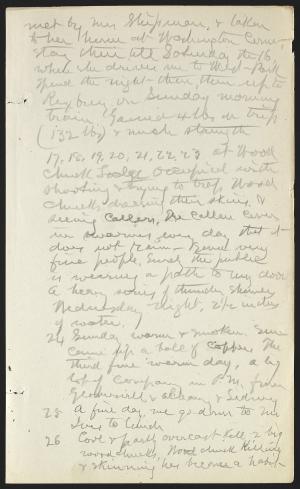 met by Mrs Shipman, & taken
to her home at Washington
stay there till Saturday the 16,
when she drives me to West Park
spend the night there, then up to
Roxbury on Sunday morning
train. Gained 4 lbs on trip
(132 lbs) & much strength
17, 18, 19, 20, 21, 22, 23 at Wood
chuck Lodge occupied with
shooting & trying to trap Wood
chucks, dressing their skins, &
seeing callers, the callers come
in swarms every day that it
does not rain - Some very
fine people. Surely the public
is wearing a path to my door
A heavy series of thunder showers
Wednesday night, 2 1/2 inches
of water.
24 Sunday warm & smoky. Sun
came up a ball of copper. The
third fine warm day, a big
lot of company in P.M. from
& Albany & Sidney
25 A fine day, we go down to
to lunch
26 Cool & partly overcast. Kill 2 big
woodchucks, Wood chuck killing
& skinning has became a habit